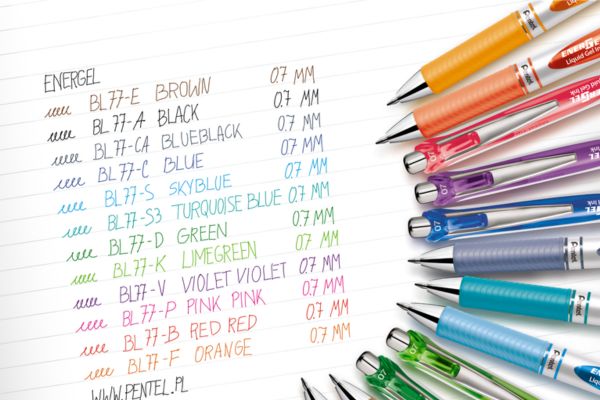 ENERGEL
BL77-E BROWN 0.7 MM
BL77-A BLACK 0.7 MM
BL77-CA BLUEBLACK 0.7 MM
BL77-C BLUE 0.7 MM
BL77-S SKYBLUE 0.7 MM
BL77-S3 TURQUOISE BLUE 0.7 MM
BL77-D GREEN 0.7 MM
BL77-K LIMEGREEN 0.7 MM
BL77-V VIOLET VIOLET 0.7 MM
BL77-P PINK PINK 0.7 MM
BL77-B RED RED 0.7 MM
BL77-F ORANGE 0.7 MM
WWW.PENTEL.PL
Pentel
Pentel
ENERGEL
Liquid Gel Ink
07
07
07
Pentel
Pentel
Pentel
07
07